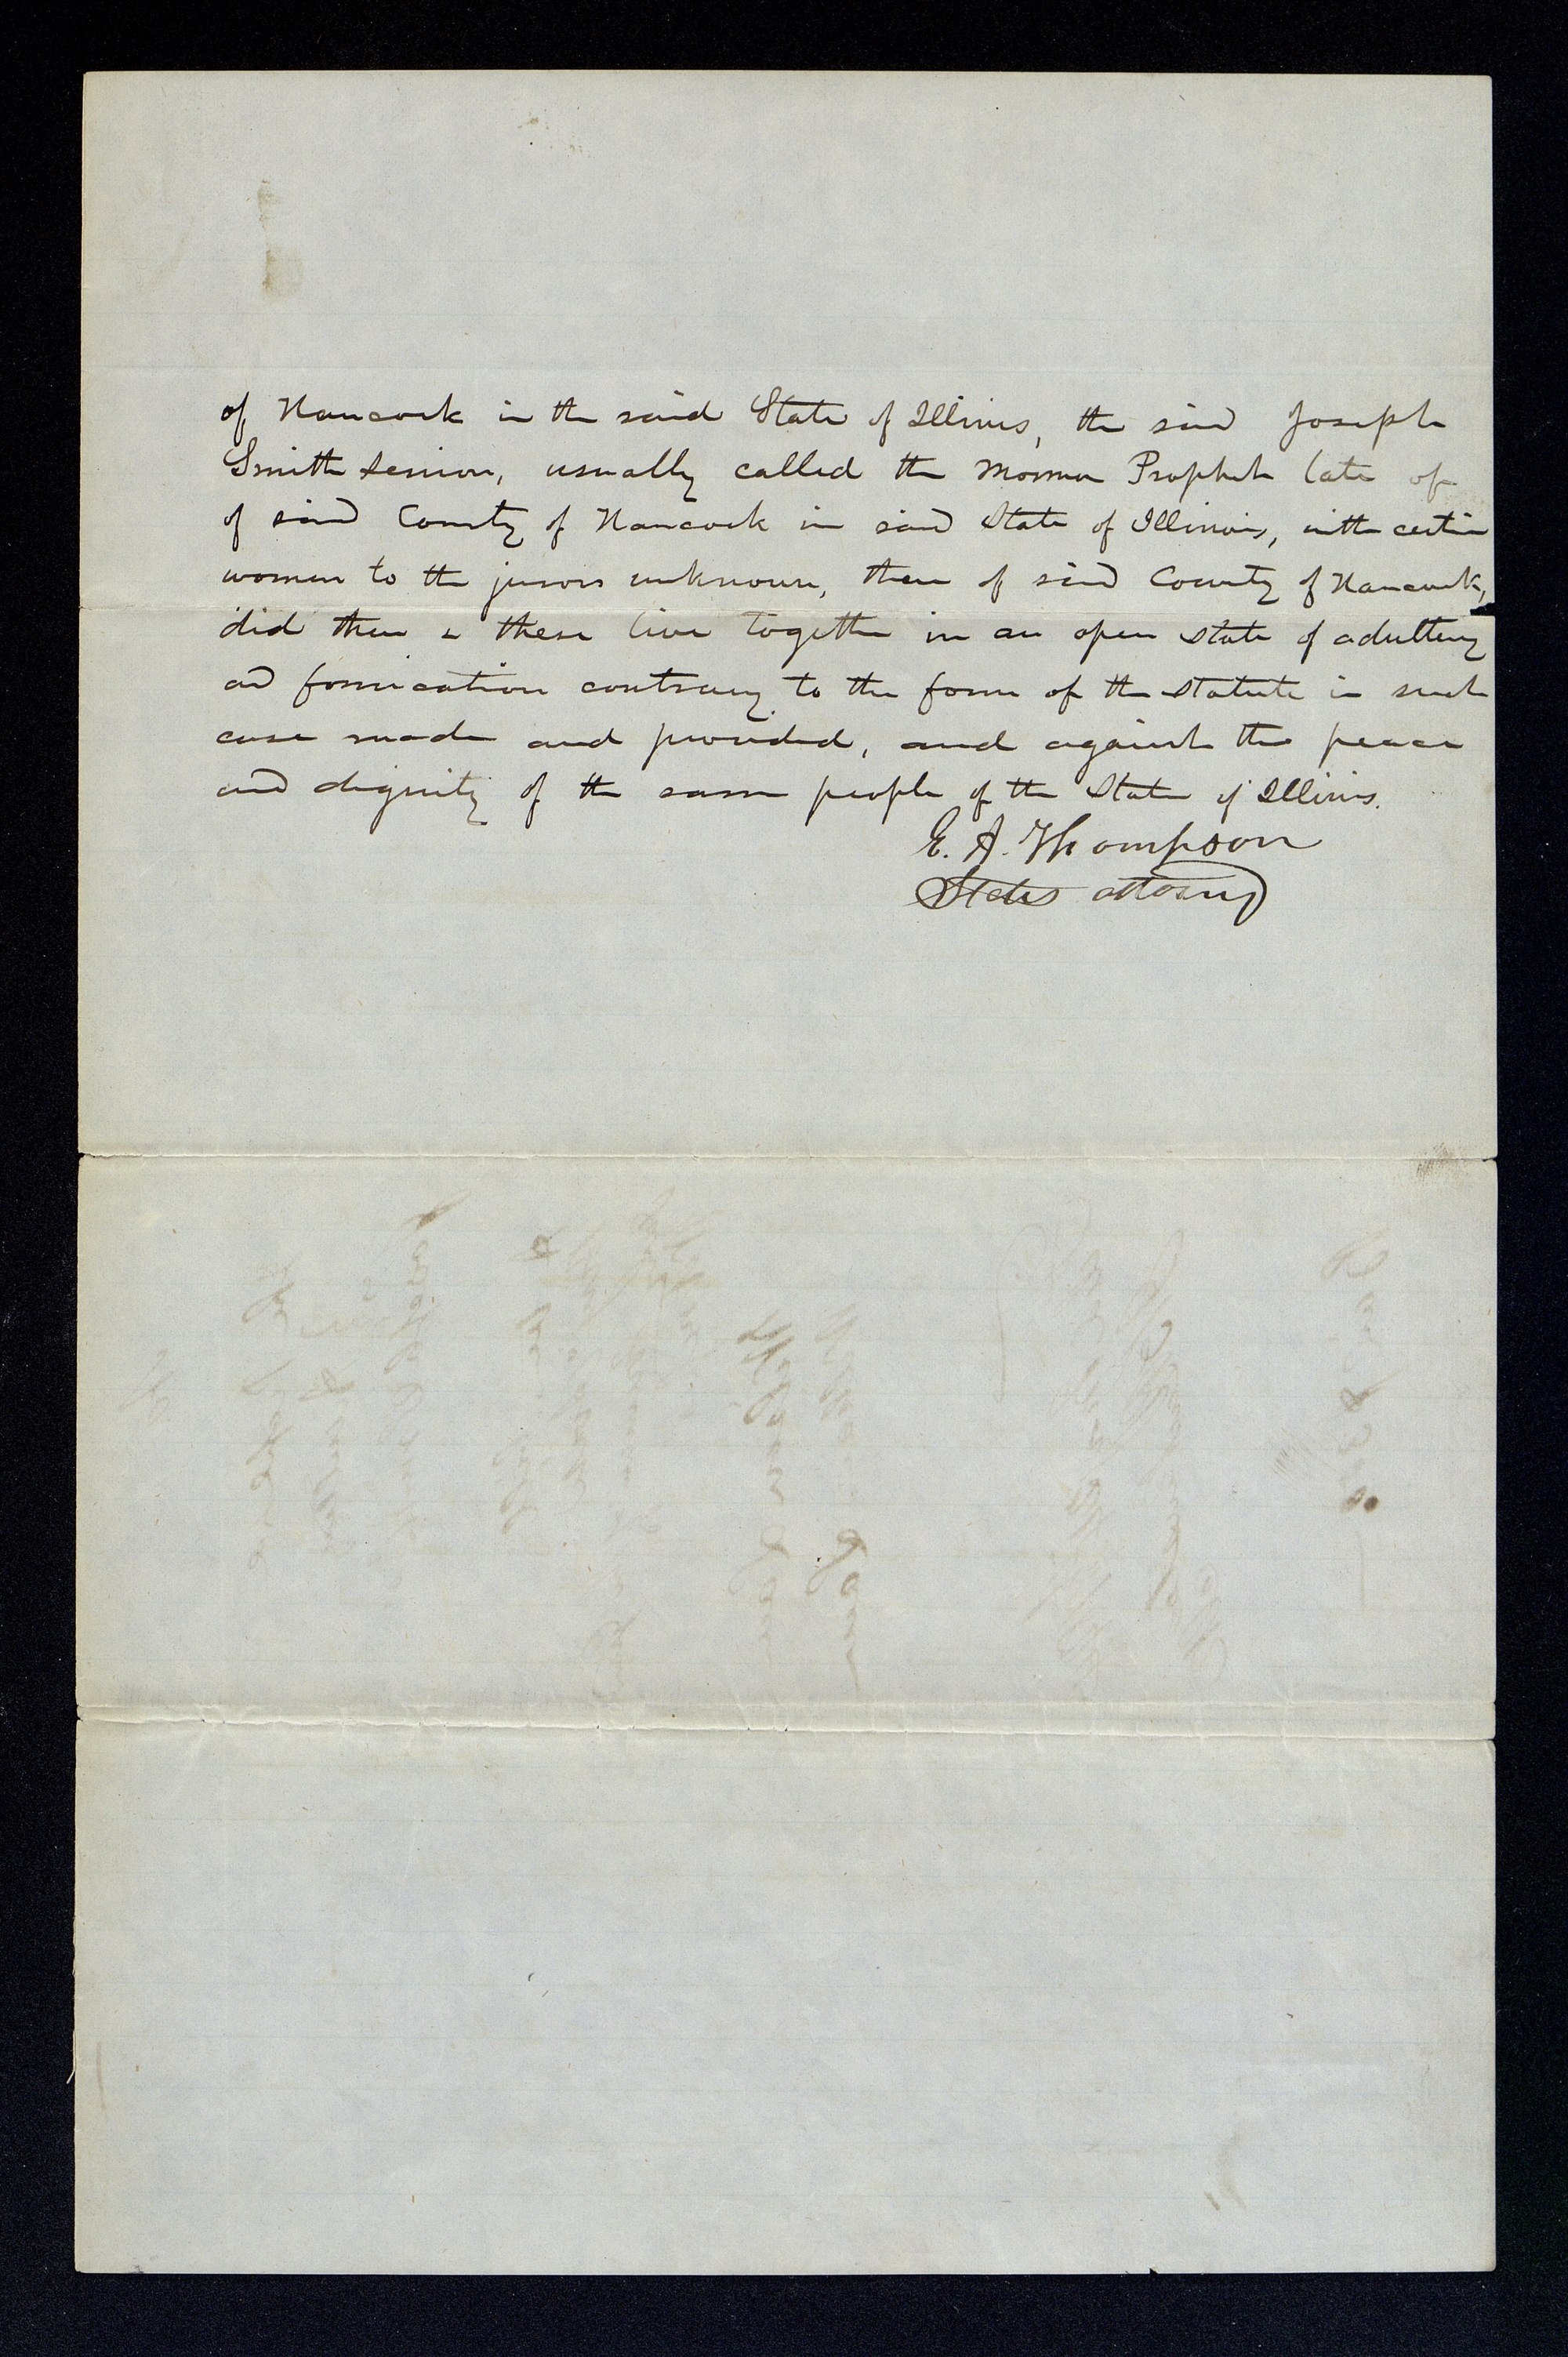 of Hancock in the said State of Illinois, the said Joseph
Smith senior, usually called the Mormon Prophet late of
of said County of Hancock in said State of Illinois, with certain
women to the jurors unknown, then of said County of Hancock,
did then & there live together in an open state of adultery
and fornication contrary to the form of the statute in such
case made and provided, and against the peace
and dignity of the same people of the State of Illinois.
E. A. Thompson
States attorney